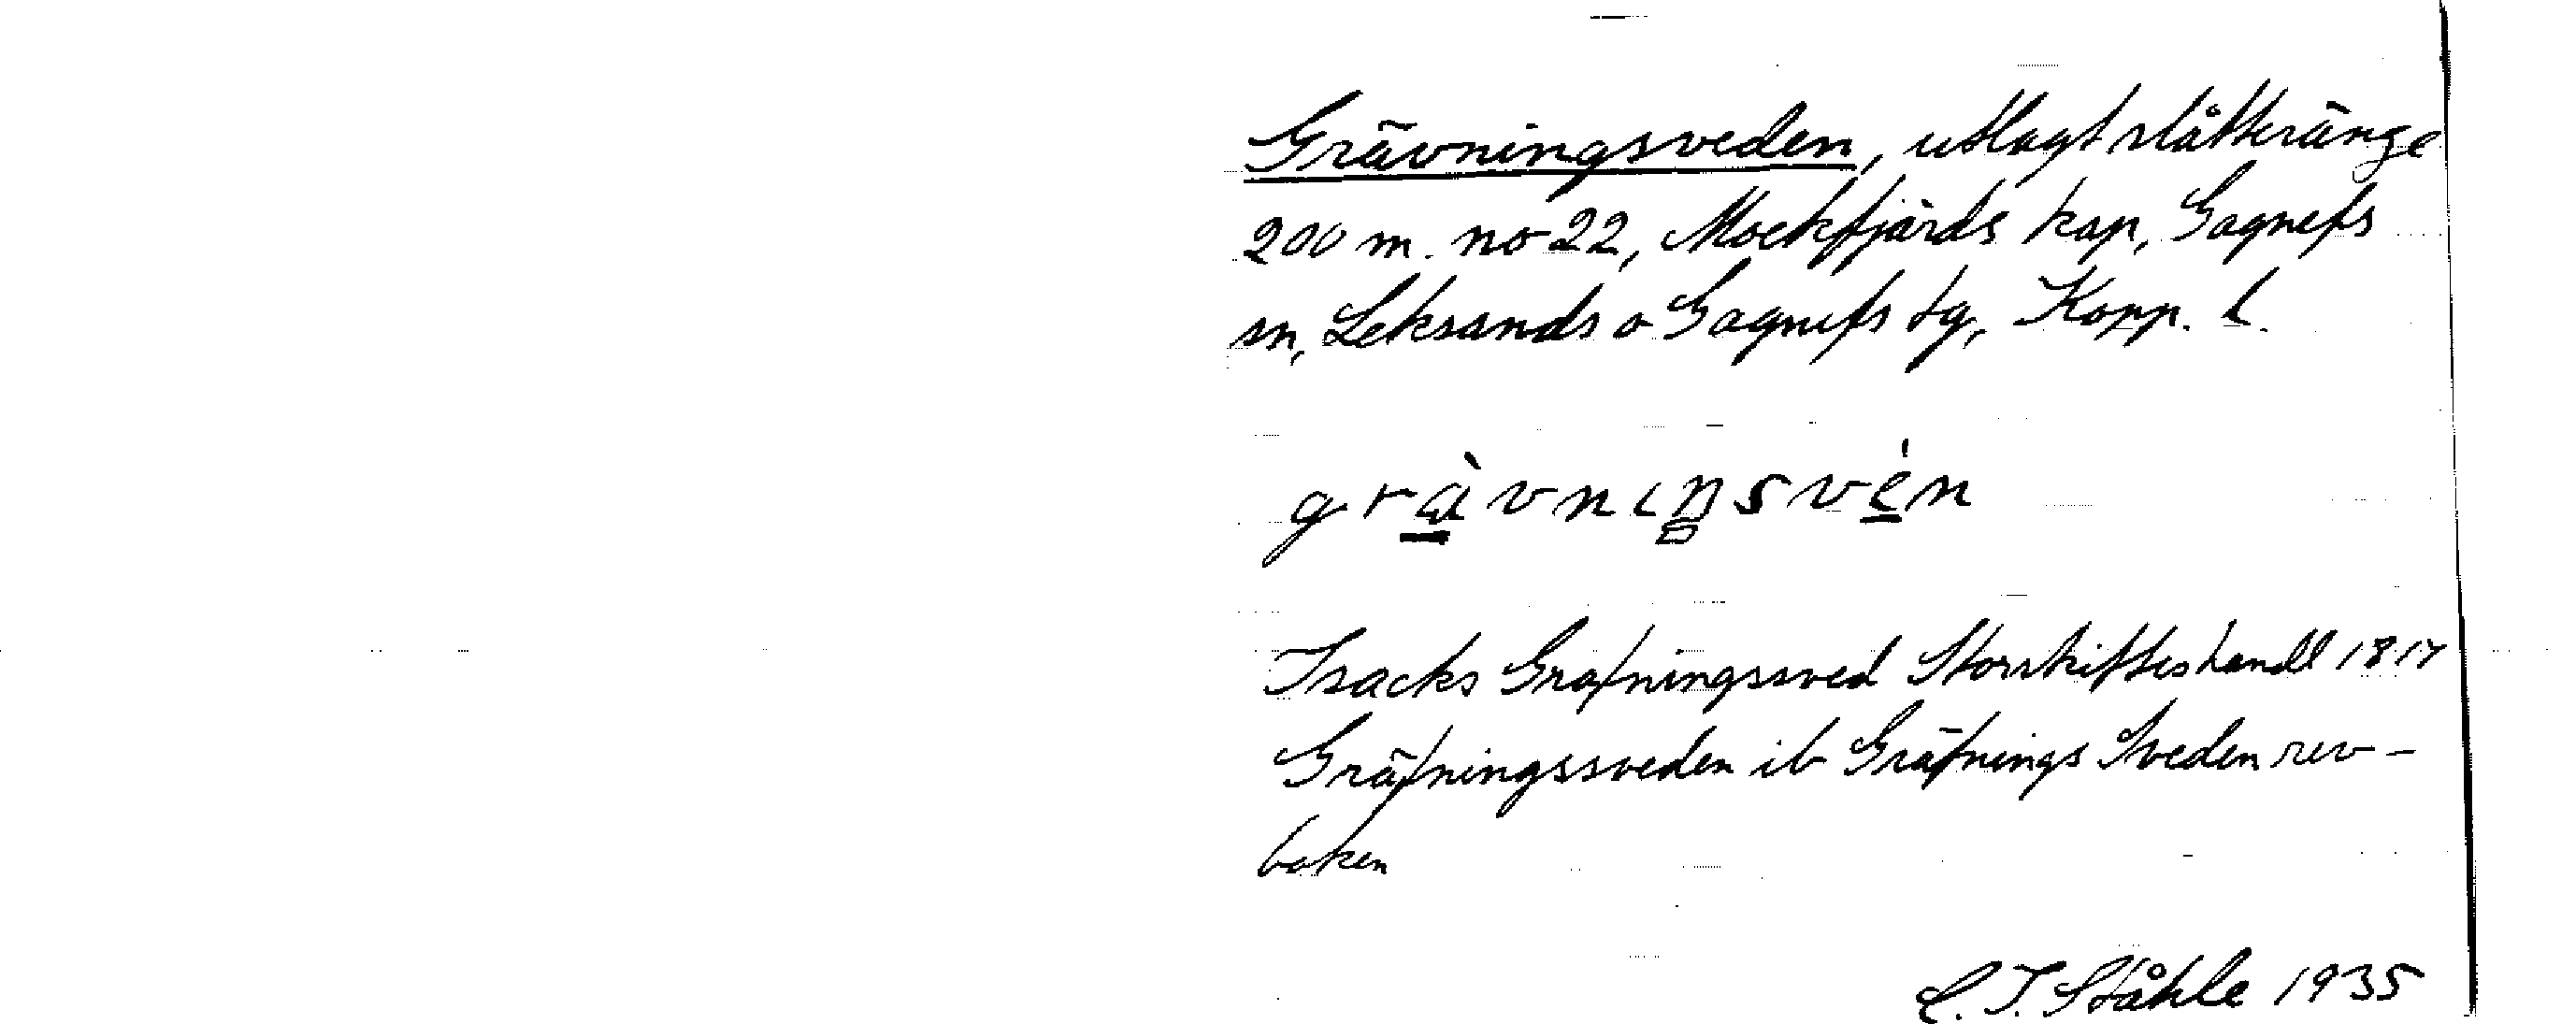 Grävningsveden, utlagt slåtteränge
200 m. no 22, Mockfjärds kap, Gagnefs
sn, Leksands o Gagnefs tg, Kopp. l.
gràvnıŋsvén
Isacks Grafningssved Storskifteshandl 1817
Gräfningssveden ib Gräfnings Sveden rev-
boken
C. I. Ståhle 1935